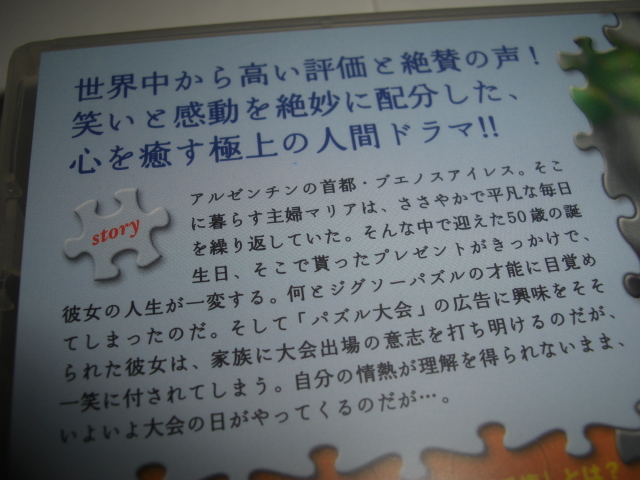 世界中から高い評価と絶賛の声!
笑いと感動を絶妙に配分した、
心を癒す極上の人間ドラマ!!
story
アルゼンチンの首都・ブエノスアイレス。そこ
に暮らす主婦マリアは、ささやかで平凡な毎日
を繰り返していた。そんな中で迎えた50歳の誕
生日、そこで貰ったプレゼントがきっかけで、
彼女の人生が一変する。何とジグソーパズルの才能に目覚め
てしまったのだ。そして「パズル大会」の広告に興味をそそ
られた彼女は、家族に大会出場の意志を打ち明けるのだが、
一笑に付されてしまう。自分の情熱が理解を得られないまま、
いよいよ大会の日がやってくるのだが…。
とは?